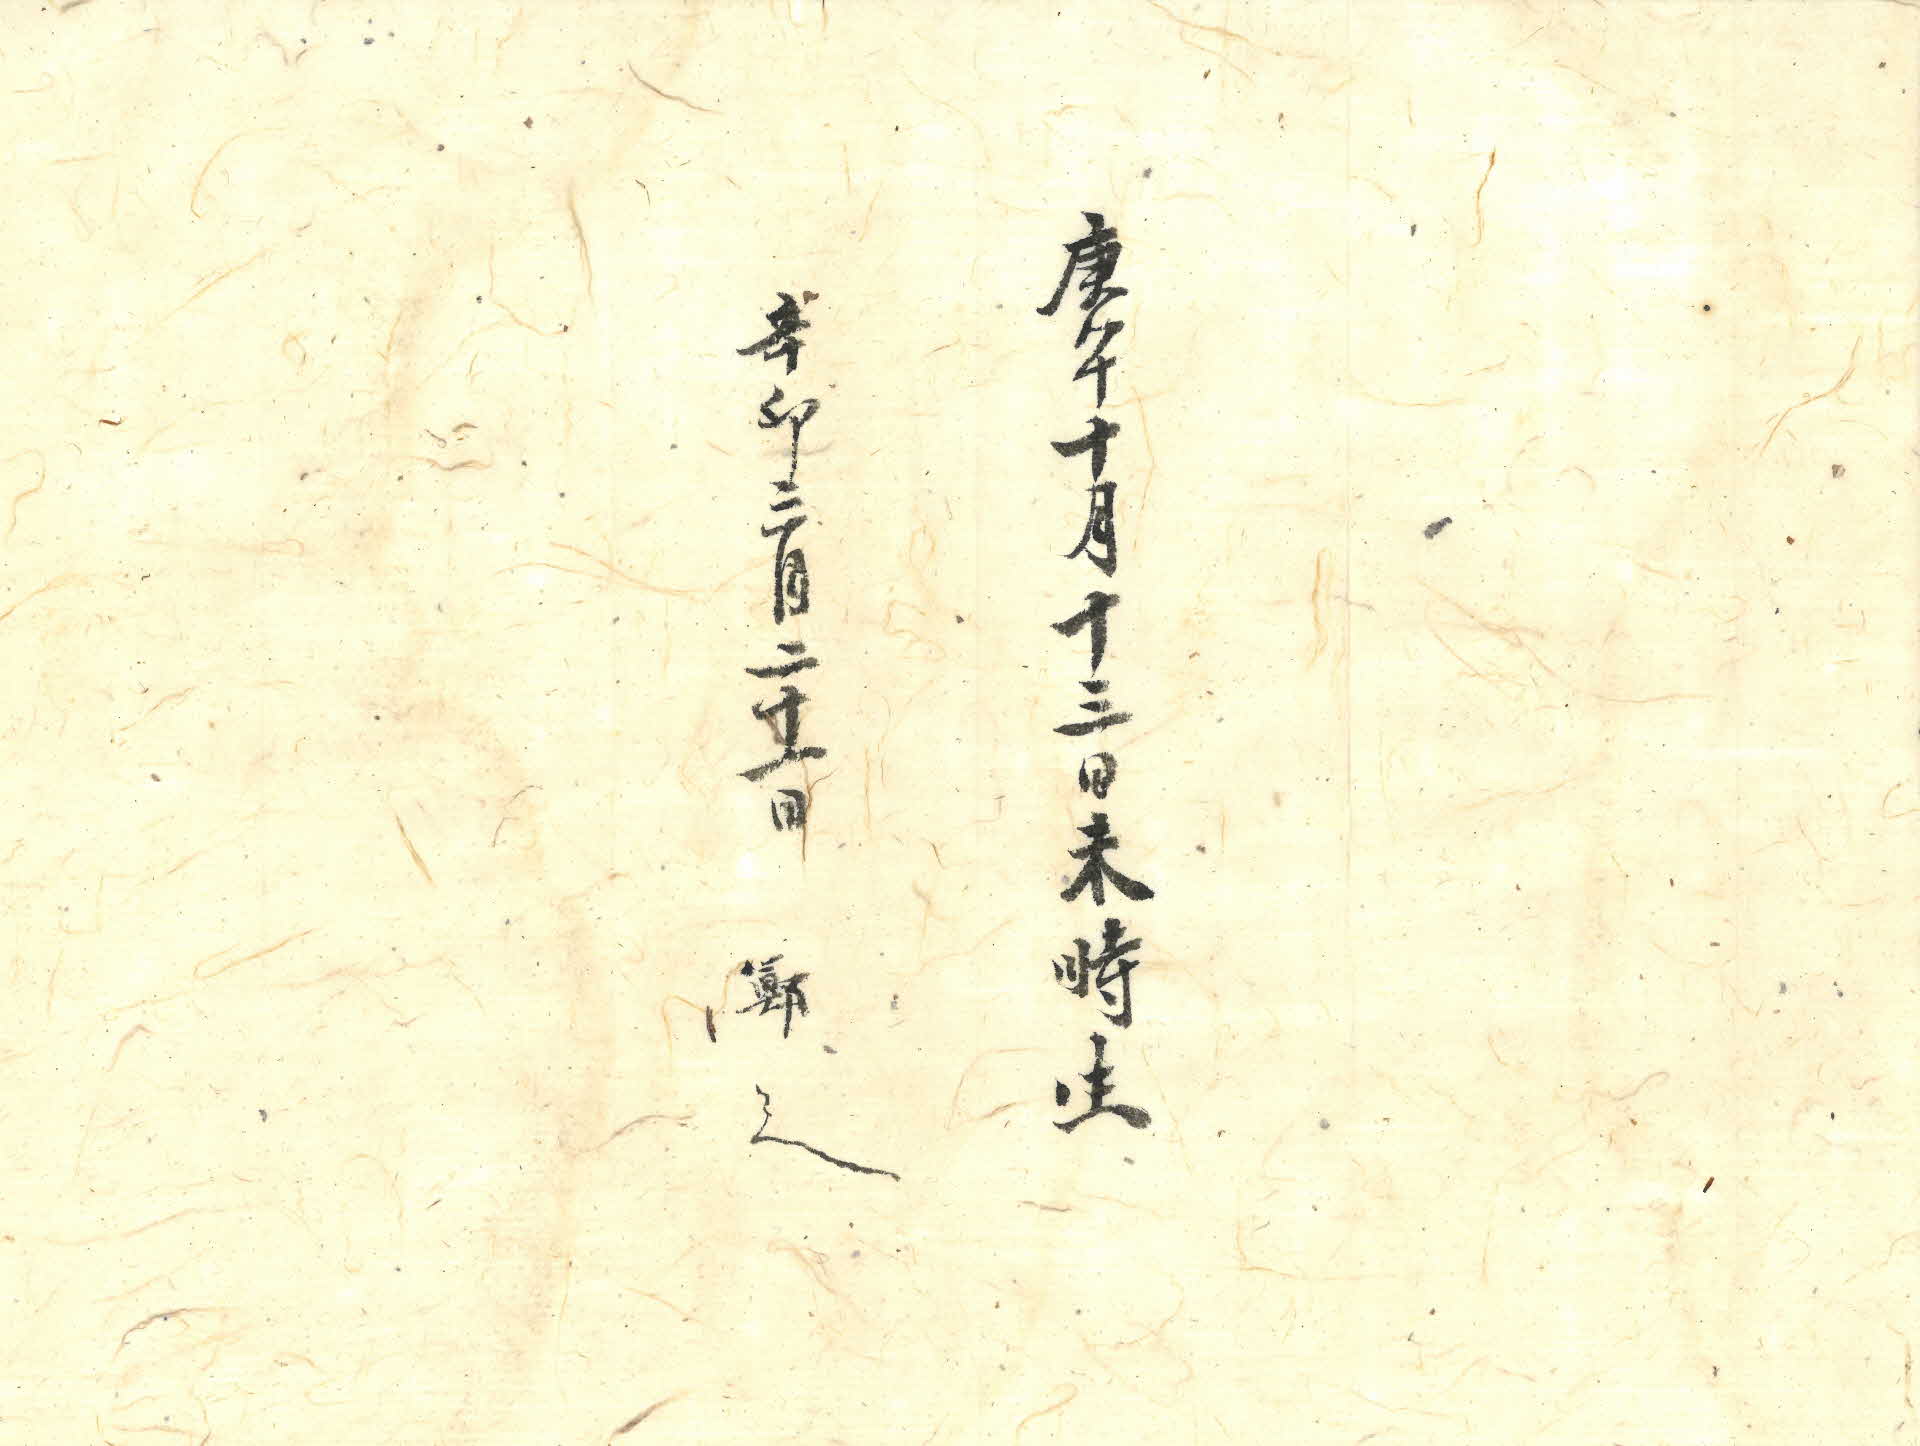 庚午十月十三日未時生
辛卯三月二十一日 鄭